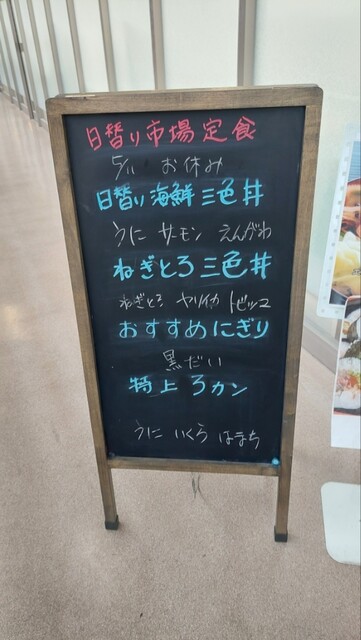 日替り市場定食
5/11 お休み
日替り海鮮三色丼
うに サーモン えんがわ
ねぎとろ三色丼
ねぎとろ ヤリイカ トビッコ
おすすめにぎり
黒だい
特上 3カン
うに いくら はまち